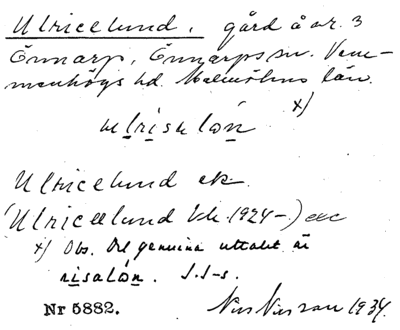 Ulricelund, gård å nr. 3
Önnarp, Önnarps sn. Vem-
menhögs hd. Malmöhus län.
x)
ulrisalón
Ulricelund ek.
(Ulricelund Ek. 1924-) exc
x) Obs. Det genuina uttalet är
risalón. S.S-s.
Nr 5882. 1934.